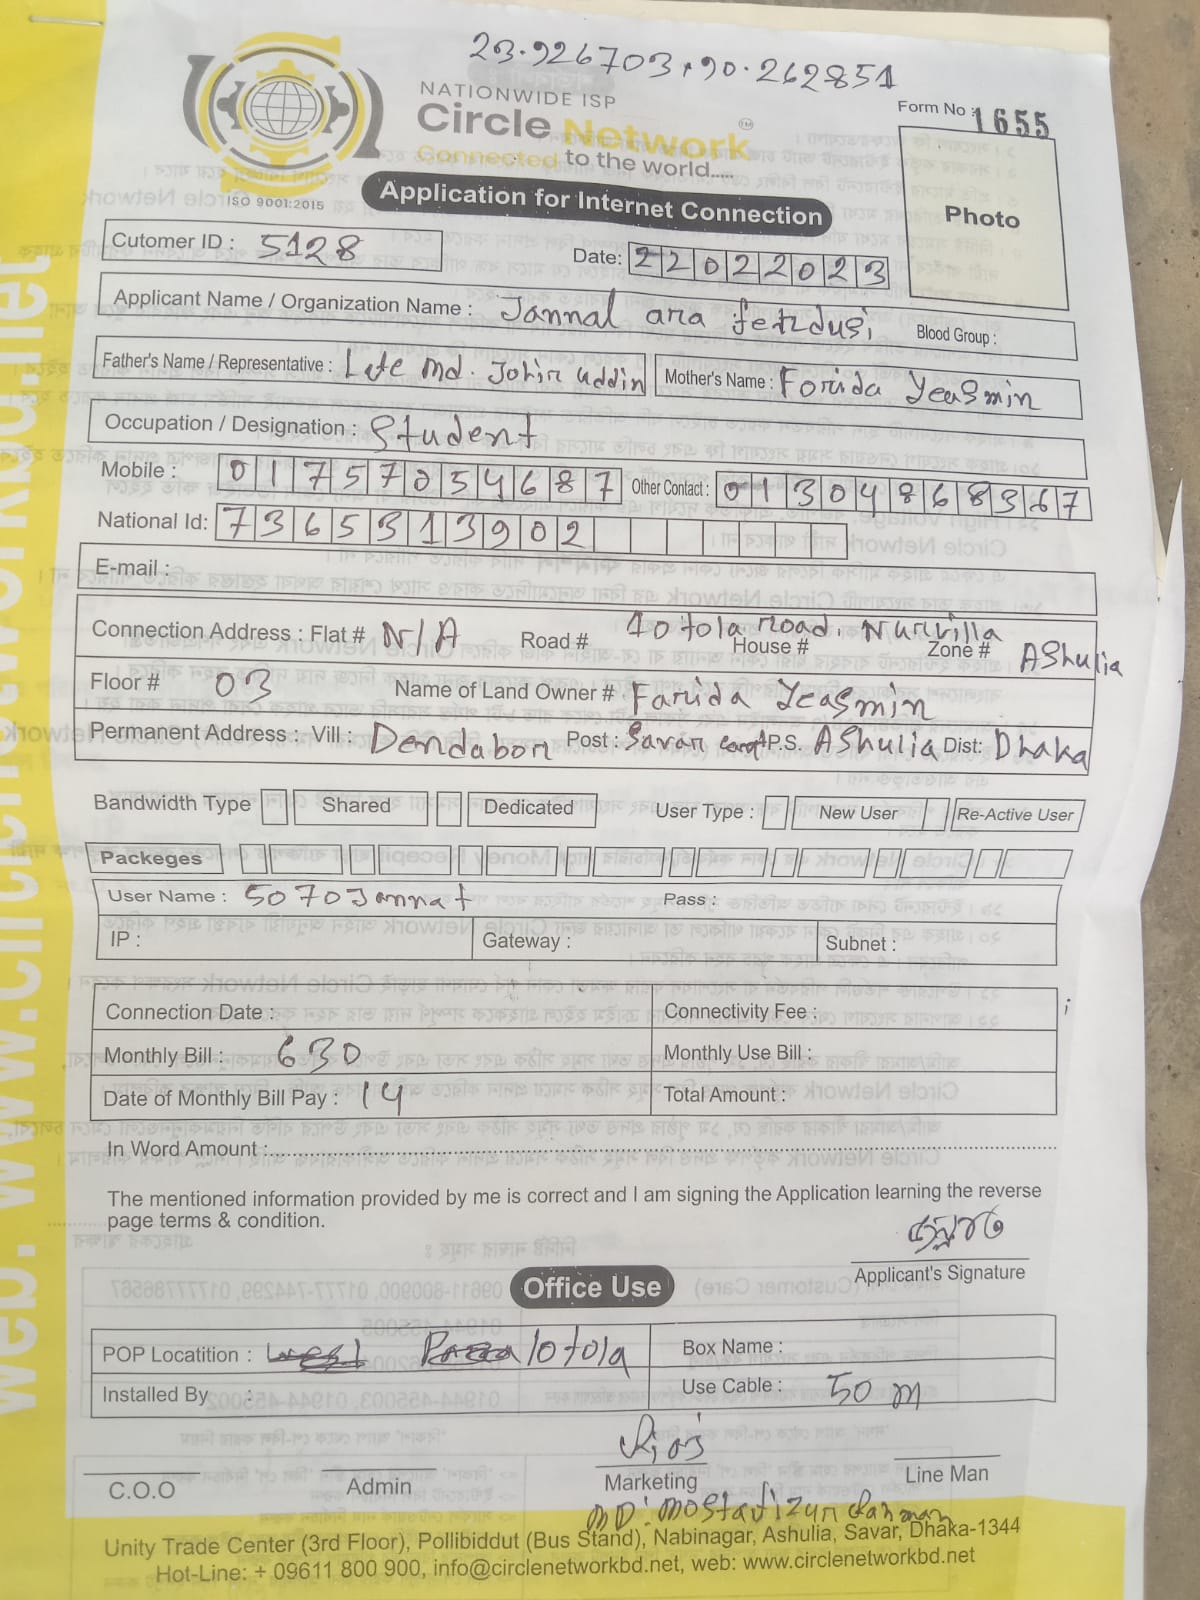 23.926703,90.262851
NATIONWIDE ISP
Circle Network TM
Connected to the world.....
ISO 9001:2015
Form No : 1655
Application for Internet Connection
Photo
Cutomer ID : 5128
Date: 22022023
Applicant Name / Organization Name : Jannal ara ferdusi Blood Group :
Father's Name / Representative : Late MD. Johir uddin Mother's Name : Forida Yeasmin
Occupation / Designation : Student
Mobile : 01757054687 Other Contact : 01304868367
National Id: 7365313902
E-mail :
Connection Address : Flat # N/A Road # 10 tola Road. House # Nurvilla Zone # AShulia
Floor # 03 Name of Land Owner # Farida Yeasmin
Permanent Address : Vill : Dendabori Post : Savar cant P.S. AShulia Dist: Dhaka
Bandwidth Type Shared Dedicated User Type : New User Re-Active User
Packeges
User Name : 5070Jannat Pass :
IP : Gateway : Subnet :
Connection Date : Connectivity Fee :
Monthly Bill : 630 Monthly Use Bill :
Date of Monthly Bill Pay : 14 Total Amount :
In Word Amount :
The mentioned information provided by me is correct and I am signing the Application learning the reverse
page terms & condition.
জান্নাত
Applicant's Signature
Office Use
POP Locatition : 10 tola Box Name :
Installed By : Use Cable : 50 m
C.O.O Admin Marketing Line Man
MD. Mostafizur Rahman
Unity Trade Center (3rd Floor), Pollibiddut (Bus Stand), Nabinagar, Ashulia, Savar, Dhaka-1344
Hot-Line: + 09611 800 900, info@circlenetworkbd.net, web: www.circlenetworkbd.net
web: www.circlenetworkbd.net